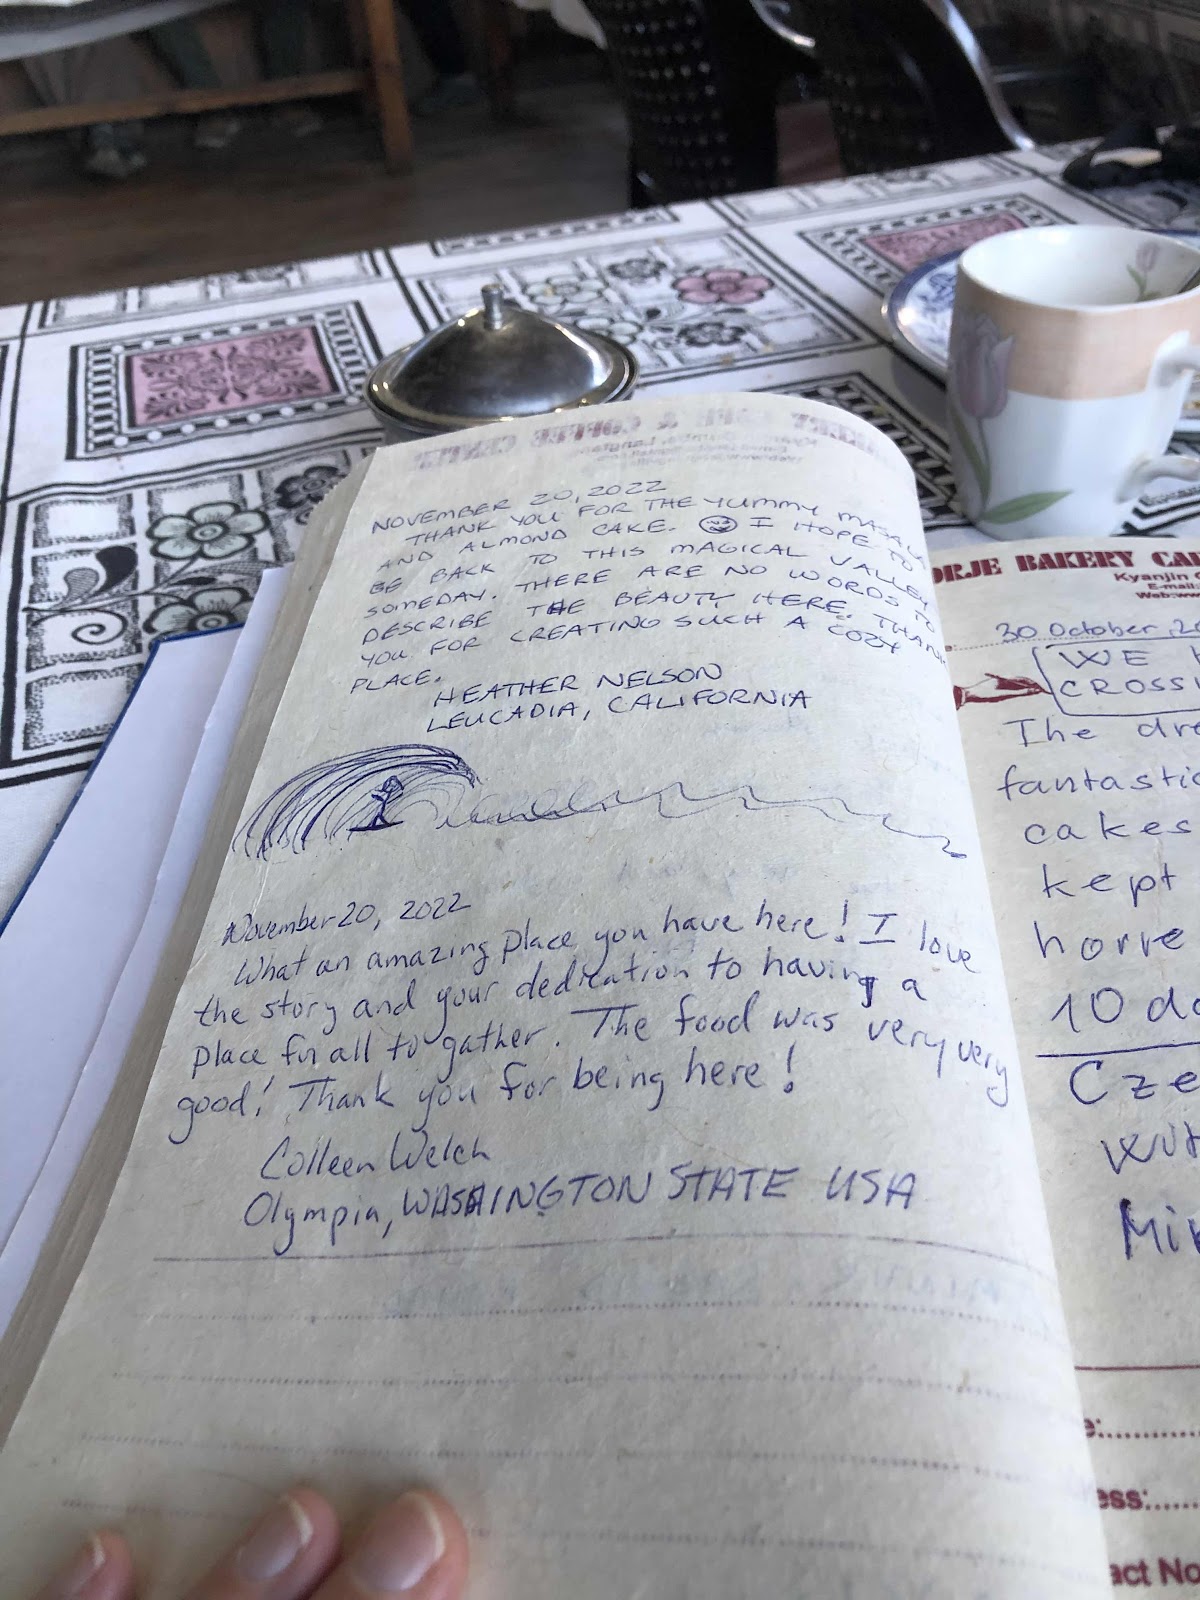 NOVEMBER 20, 2022
THANK YOU FOR THE YUMMY MASALA
AND ALMOND CAKE. I HOPE TO
BE BACK TO THIS MAGICAL VALLEY
SOMEDAY. THERE ARE NO WORDS TO
DESCRIBE THE BEAUTY HERE. THANK
YOU FOR CREATING SUCH A COZY
PLACE.
HEATHER NELSON
LEUCADIA, CALIFORNIA
November 20, 2022
What an amazing place you have here! I love
the story and your dedication to having a
place for all to gather. The food was very very
good! Thank you for being here!
Colleen Welch
Olympia, WASHINGTON STATE USA
ORJE BAKERY CA
Kyanjin
E-mail:
Web:ww
30 October, 20
WE
CROSSI
The dre
fantastic
cakes
kept
horre
10 da
Cze
Act No